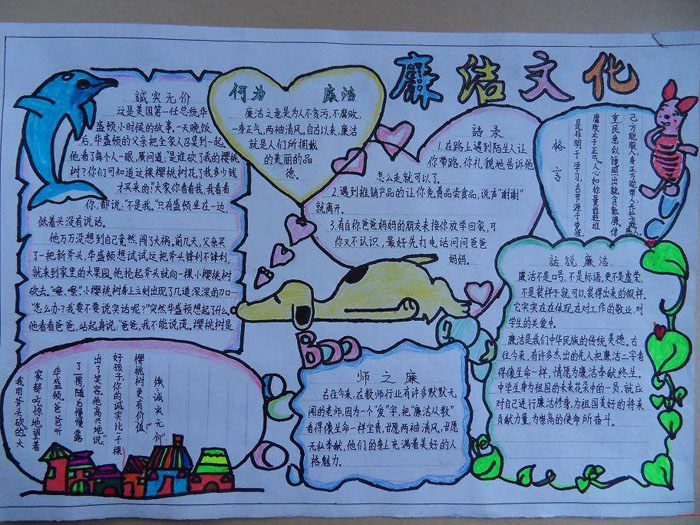 廉洁文化
诚实无价
这是美国第一任总统华
盛顿小时候的故事。一天晚饭
后,华盛顿的父亲把全家人召集到一起。
他看了每个人一眼,厉问道:"是谁砍了我的樱桃
树?你们可知道这棵樱桃树花了我多少钱
才买来的"大家你看看我,我看看
你,都说:"不是我。"只有盛顿坐在一边,
低着头没有说话。
他万万没想到自己竟然,闯了大祸。前几天,父亲买
了一把新斧头,华盛顿想试试这把斧头锋利不锋利,
就来到家里的大果园。他抡起斧头就向一棵小樱桃树
砍去。"嚓、嚓"小樱桃树身上立刻出现了几道深深的刀口
"怎么办?我要不要说实话呢?"突然华盛顿想起了什么
他看看爸爸,站起身说:"爸爸,我不能说谎,樱桃树是
我用斧头砍的。"大
家都吃惊地望着
华盛顿爸爸听
了,一番随后慢慢露
出了笑容。他高兴地说:
好孩子你的诚实比千棵
樱桃树更有价值!"
钱诚虫无价
何为 廉洁
廉洁之意是为人不贪污,不腐败,
一身正气,两袖清风,自古以来,廉洁
就是人们所拥戴
的美丽的品
德.
语录
1.在路上遇到陌生人让
你带路,你礼貌地告诉他
怎么走就可以了.
2.遇到推销产品的让你免费品尝食品,说声"谢谢"
就离开。
3.有自称爸爸妈妈的朋友来接你放学回家,可
你又不认识,最好先打电话问问爸爸
妈妈.
格言
话说廉洁
廉洁不是口号,不是标语,更不是虚荣,
不是装样子就可以装得出来的假样。
它实实在在体现在对工作的敬业,对
学生的关爱中.
廉洁是我们中华民族的传统美德。古
往今来,有许多杰出的先人把廉洁二字看
得像生命一样,情愿为廉洁奉献终生。
中学生身为祖国的未来花朵中的一员,就应
对自己进行廉洁修身,为祖国美好的将来
贡献力量,为崇高的使命所奋斗。
师之廉
古往今来,在教师行业有许多默默无
闻的老师,因为一个"爱"字,把"廉洁从教"
看得像生命一样宝贵,甘愿两袖清风,甘愿
无私奉献,他们的身上充满着美好的人
格魅力.